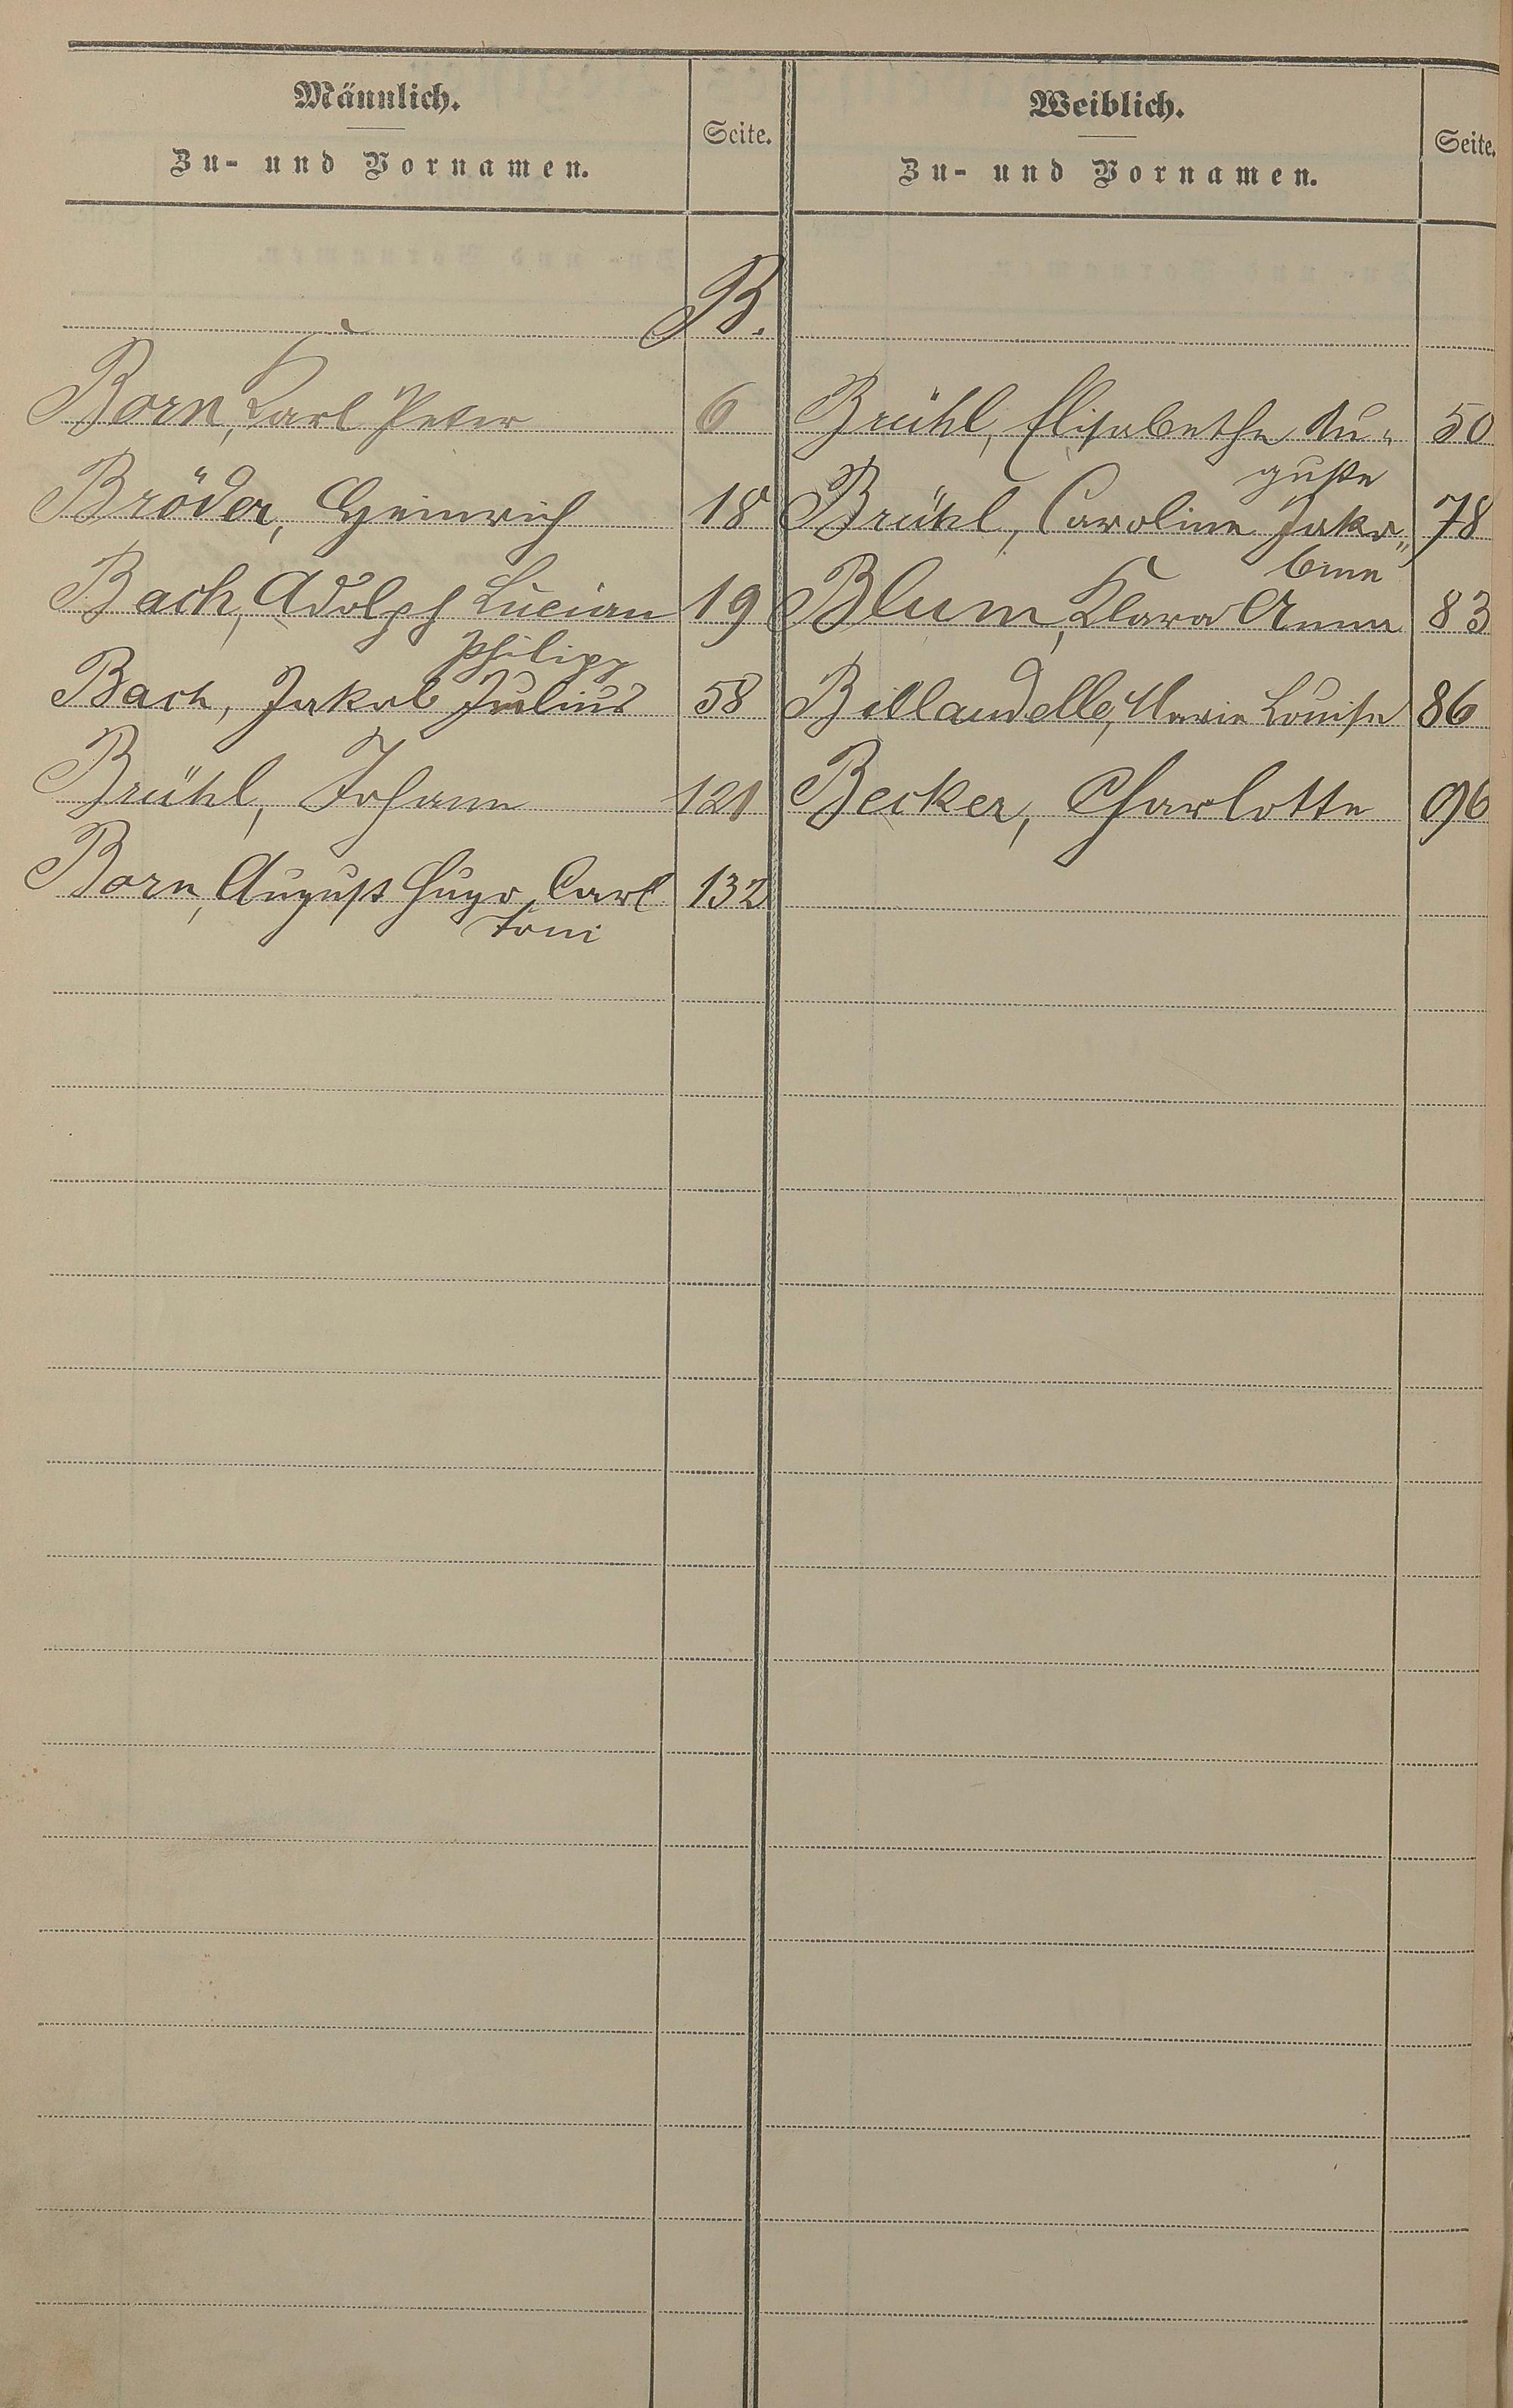 Männlich.
Zu- und Vornamen.
Seite.
Weiblich.
Zu- und Vornamen.
Seite.
B.
Born, Karl Peter 6
Brühl, Elisabethe Au- 50
guste
Bröder, Heinrich 18
Brühl, Caroline Jako„ 78
bine
Bach, Adolph Lucian 19
Philipp
Blum, Klara Anna 83
Bach, Jakob Julius 58
Billaudelle, Marie Louise 86
Brühl, Johann 121
Becker, Charlotte 96
Born, August Hugo Carl 132
Toni